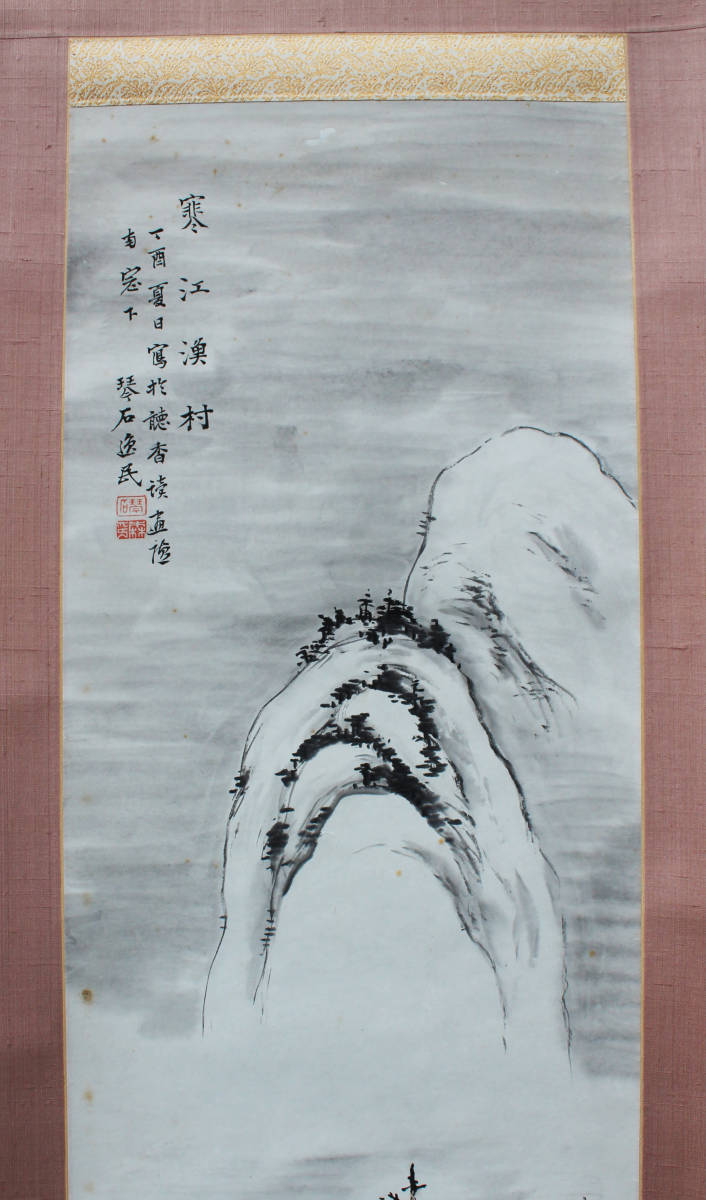 寒江漁村
丁酉夏日寫於聽香讀畫謼
南窓下 琴石逸民
琴石